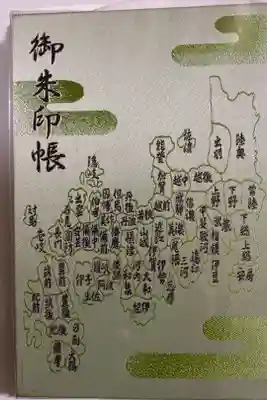 御朱印帳
陸奥
出羽
佐渡
越後
能登
越中
加賀
越前
上野
下野
常陸
下総
上総
安房
武蔵
相模
伊豆
甲斐
駿河
信濃
遠江
三河
尾張
美濃
飛騨
近江
伊勢
志摩
伊賀
若狭
山城
大和
紀伊
丹後
丹波
但馬
播磨
隠岐
伯耆
備前
備中
備後
安芸
長門
讃岐
阿波
土佐
伊予
対馬
壱岐
筑前
筑後
豊前
豊後
肥前
肥後
日向
大隅
薩摩